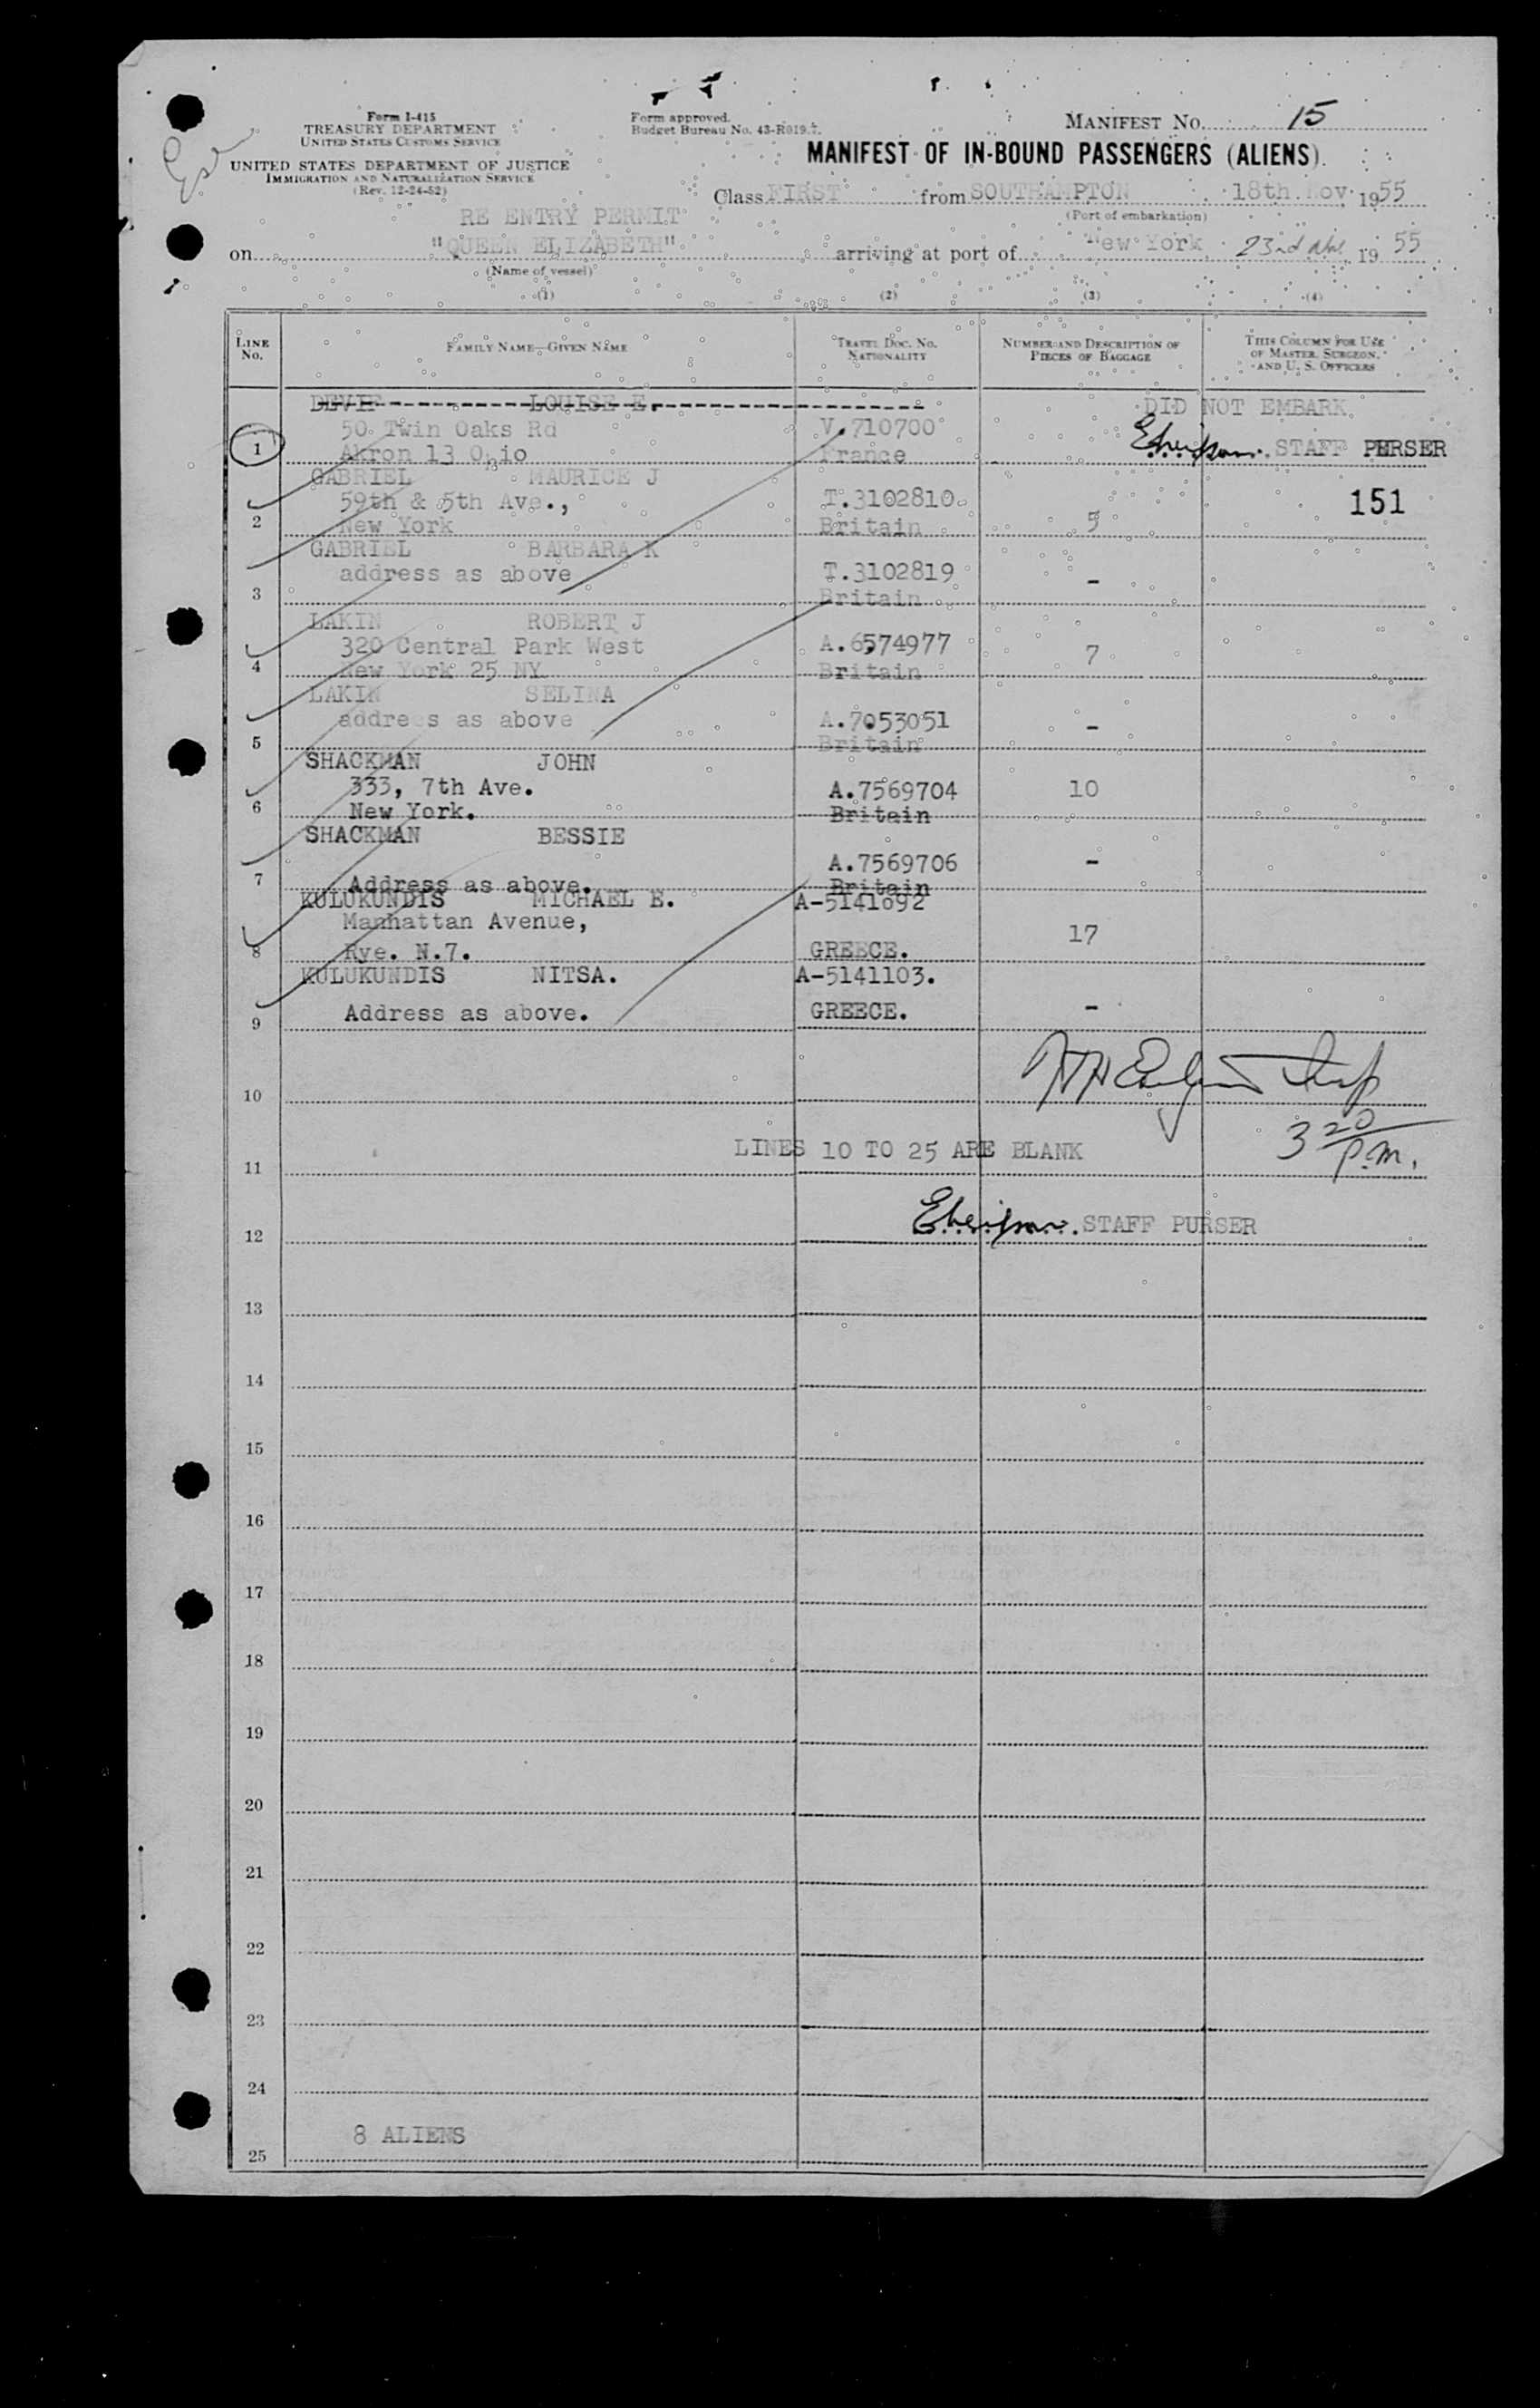 Form I-415
TREASURY DEPARTMENT
UNITED STATES CUSTOMS SERVICE
UNITED STATES DEPARTMENT OF JUSTICE
IMMIGRATION AND NATURALIZATION SERVICE
(Rev. 12-24-52)
Form approved.
Budget Bureau No. 43-R019.7.
MANIFEST NO. 15
MANIFEST OF IN-BOUND PASSENGERS (ALIENS)
Class FIRST from SOUTHAMPTON 18th. Nov 1955
(Port of embarkation)
RE ENTRY PERMIT
on "QUEEN ELIZABETH" arriving at port of New York 23rd Nov 1955
(Name of vessel)
(1) (2) (3) (4)
LINE NO. FAMILY NAME—GIVEN NAME TRAVEL DOC. NO. NATIONALITY NUMBER AND DESCRIPTION OF PIECES OF BAGGAGE THIS COLUMN FOR USE OF MASTER, SURGEON, AND U. S. OFFICERS
LOUISE E. DID NOT EMBARK.
50 Twin Oaks Rd V.710700
1 Akron 13 Ohio France STAFF PURSER
GABRIEL MAURICE J
59th & 5th Ave., T.3102810 151
2 New York Britain 5
GABRIEL BARBARA K
address as above T.3102819 -
3 Britain
LAKIN ROBERT J
320 Central Park West A.6574977 7
4 New York 25 NY Britain
LAKIN SELINA
address as above A.7053051 -
5 Britain
SHACKMAN JOHN
333, 7th Ave. A.7569704 10
6 New York. Britain
SHACKMAN BESSIE
A.7569706 -
7 Address as above. Britain
KULUKUNDIS MICHAEL E. A-5141092
Manhattan Avenue, 17
8 Rye. N.7. GREECE.
KULUKUNDIS NITSA. A-5141103.
9 Address as above. GREECE. -
10
3 20 p.m.
LINES 10 TO 25 ARE BLANK
11
STAFF PURSER
12
13
14
15
16
17
18
19
20
21
22
23
24
8 ALIENS
25